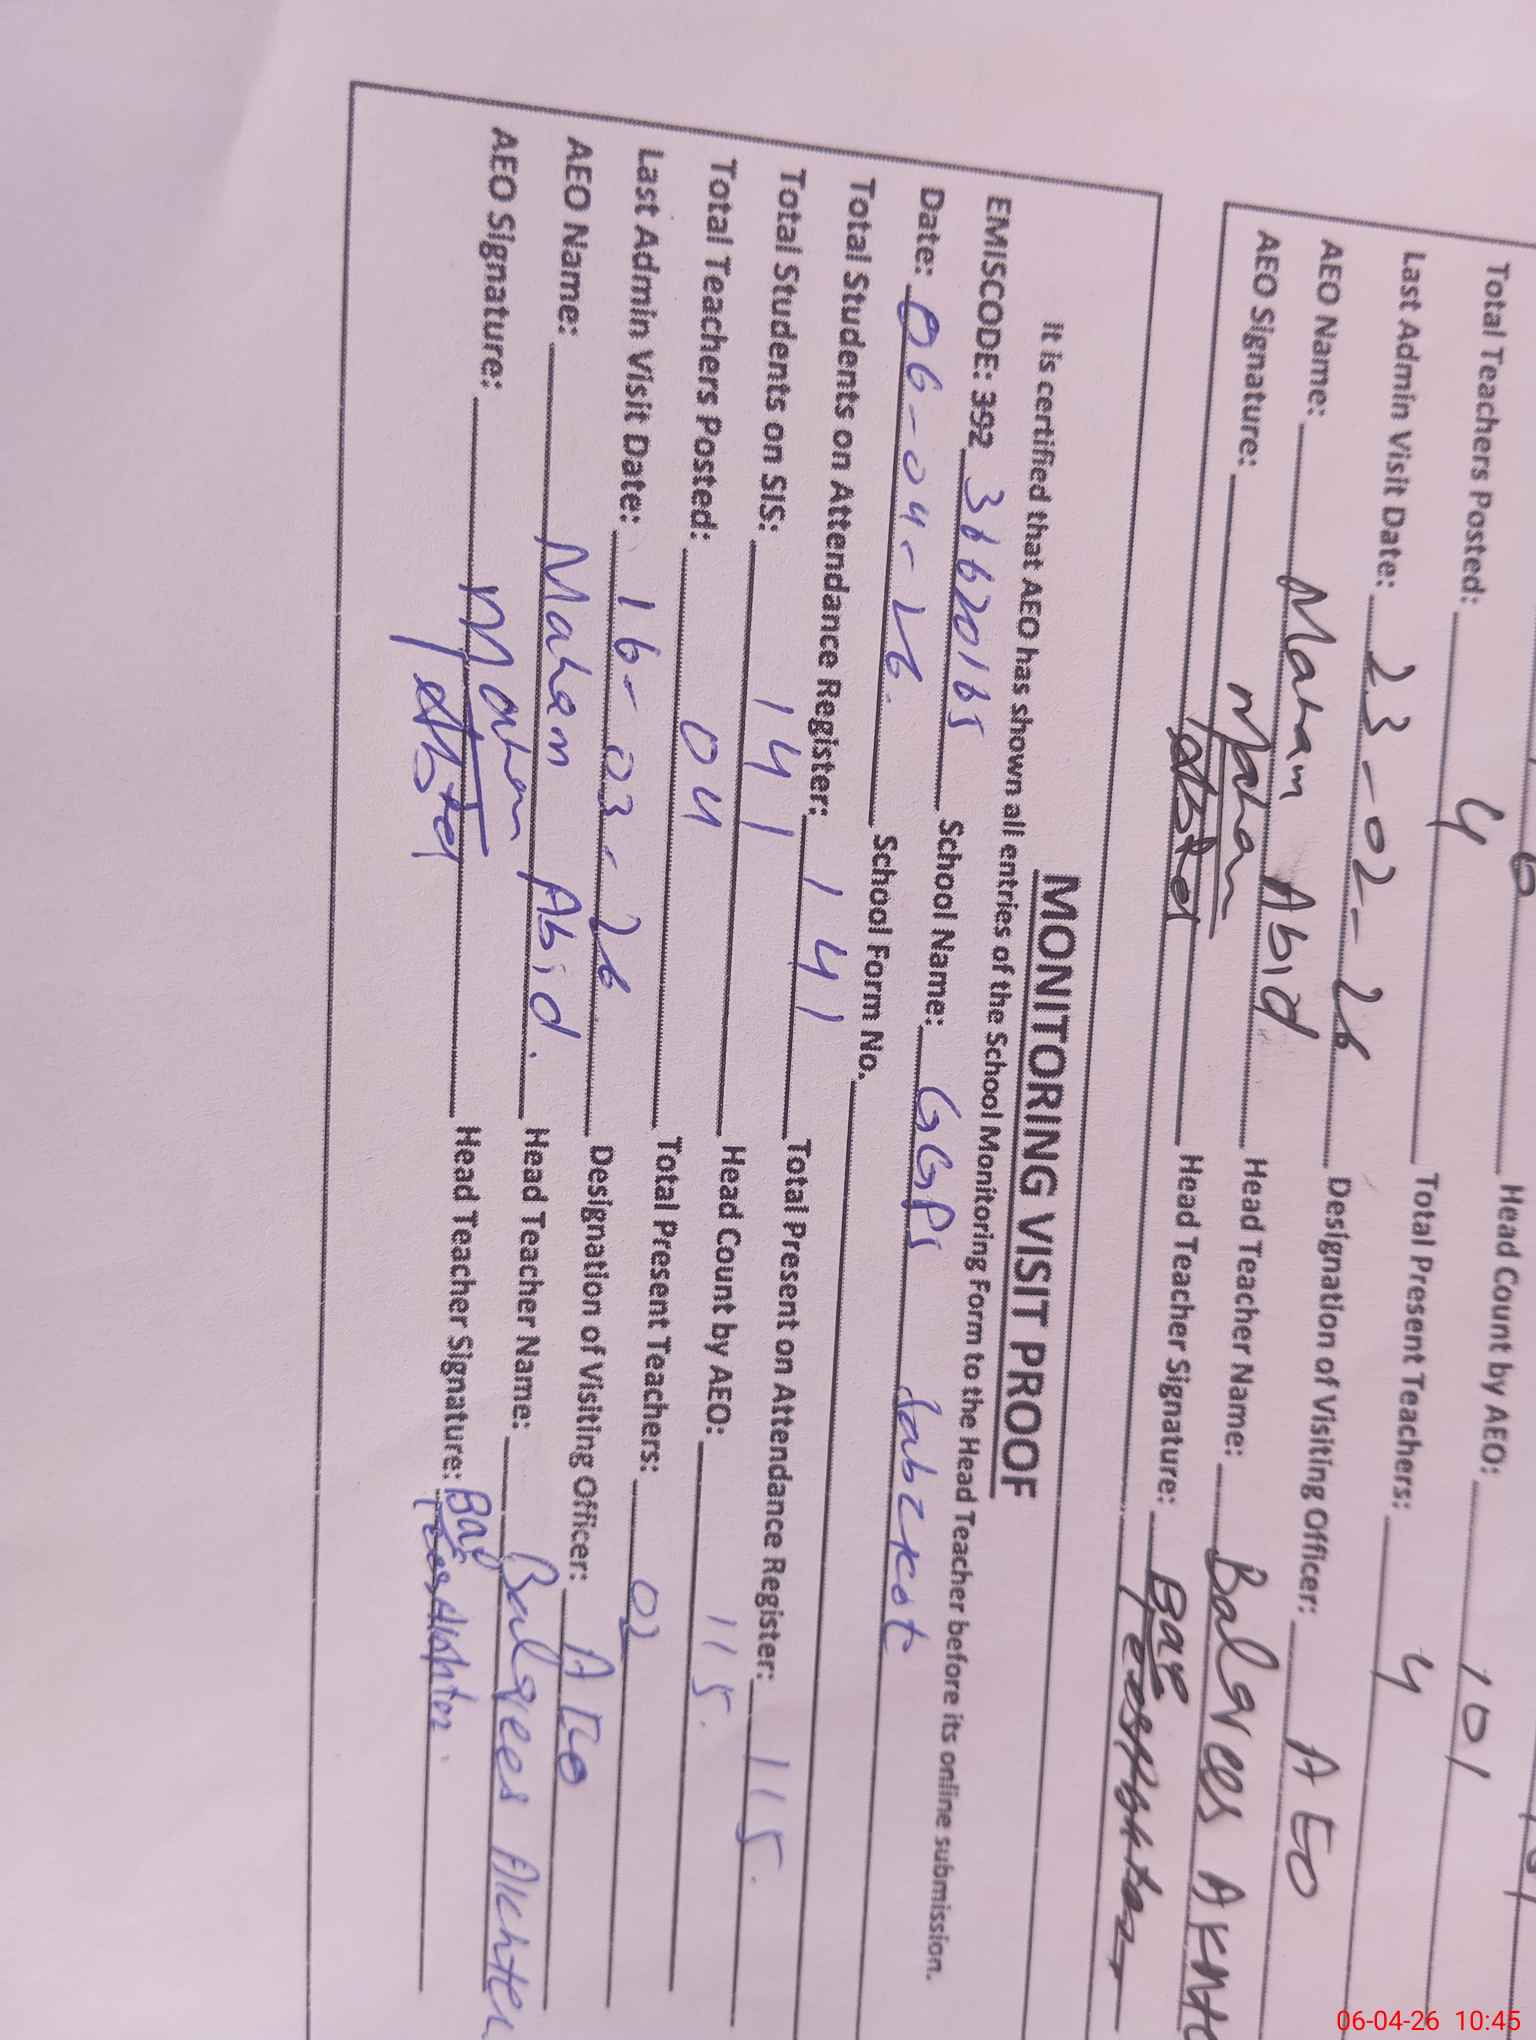 Total Teachers Posted: 4 Head Count by AEO: 101
Last Admin Visit Date: 23-02-26 Total Present Teachers: 4
AEO Name: Maham Abid Designation of Visiting Officer: AEO
AEO Signature: Maham Head Teacher Name: Balqees Akhte
Abid Head Teacher Signature:
MONITORING VISIT PROOF
It is certified that AEO has shown all entries of the School Monitoring Form to the Head Teacher before its online submission.
EMISCODE: 392 School Name: GGPS Jabzkot
Date: 06-04-26. School Form No.
Total Students on Attendance Register: 141 Total Present on Attendance Register: 115.
Total Students on SIS: 141 Head Count by AEO: 115.
Total Teachers Posted: 04 Total Present Teachers: 02
Last Admin Visit Date: 16-03-26 Designation of Visiting Officer: AEO
AEO Name: Maham Abid. Head Teacher Name: Balqees Akhter
AEO Signature: Maham Head Teacher Signature:
06-04-26 10:45